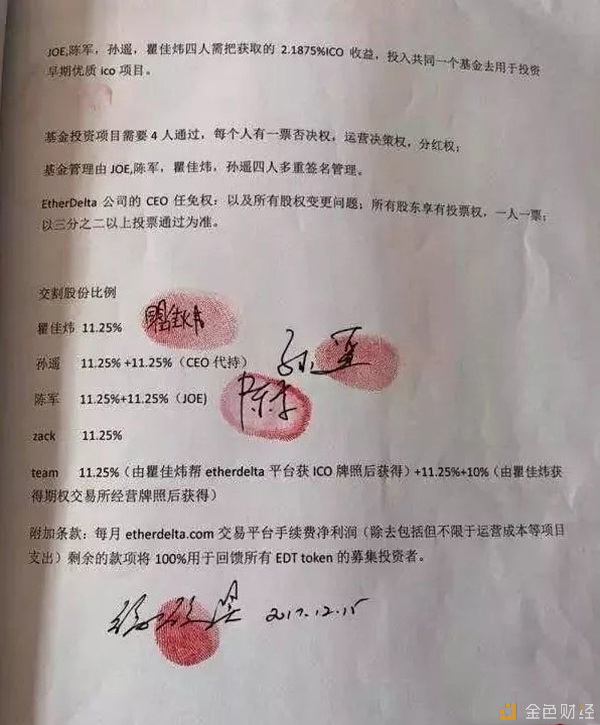 JOE,陈军，孙遥，瞿佳炜四人需把获取的 2.1875%ICO 收益，投入共同一个基金去用于投资
早期优质 ico 项目。
基金投资项目需要 4 人通过，每个人有一票否决权，运营决策权，分红权；
基金管理由 JOE,陈军，瞿佳炜，孙遥四人多重签名管理。
EtherDelta 公司的 CEO 任免权：以及所有股权变更问题；所有股东享有投票权，一人一票；
以三分之二以上投票通过为准。
交割股份比例
瞿佳炜 11.25% 瞿佳炜
孙遥 11.25% +11.25%（CEO 代持） 孙遥
陈军 11.25%+11.25%（JOE) 陈军
zack 11.25%
team 11.25%（由瞿佳炜帮 etherdelta 平台获 ICO 牌照后获得）+11.25%+10%（由瞿佳炜获
得期权交易所经营牌照后获得）
附加条款：每月 etherdelta.com 交易平台手续费净利润（除去包括但不限于运营成本等项目
支出）剩余的款项将 100%用于回馈所有 EDT token 的募集投资者。
2017.12.15
金色财经